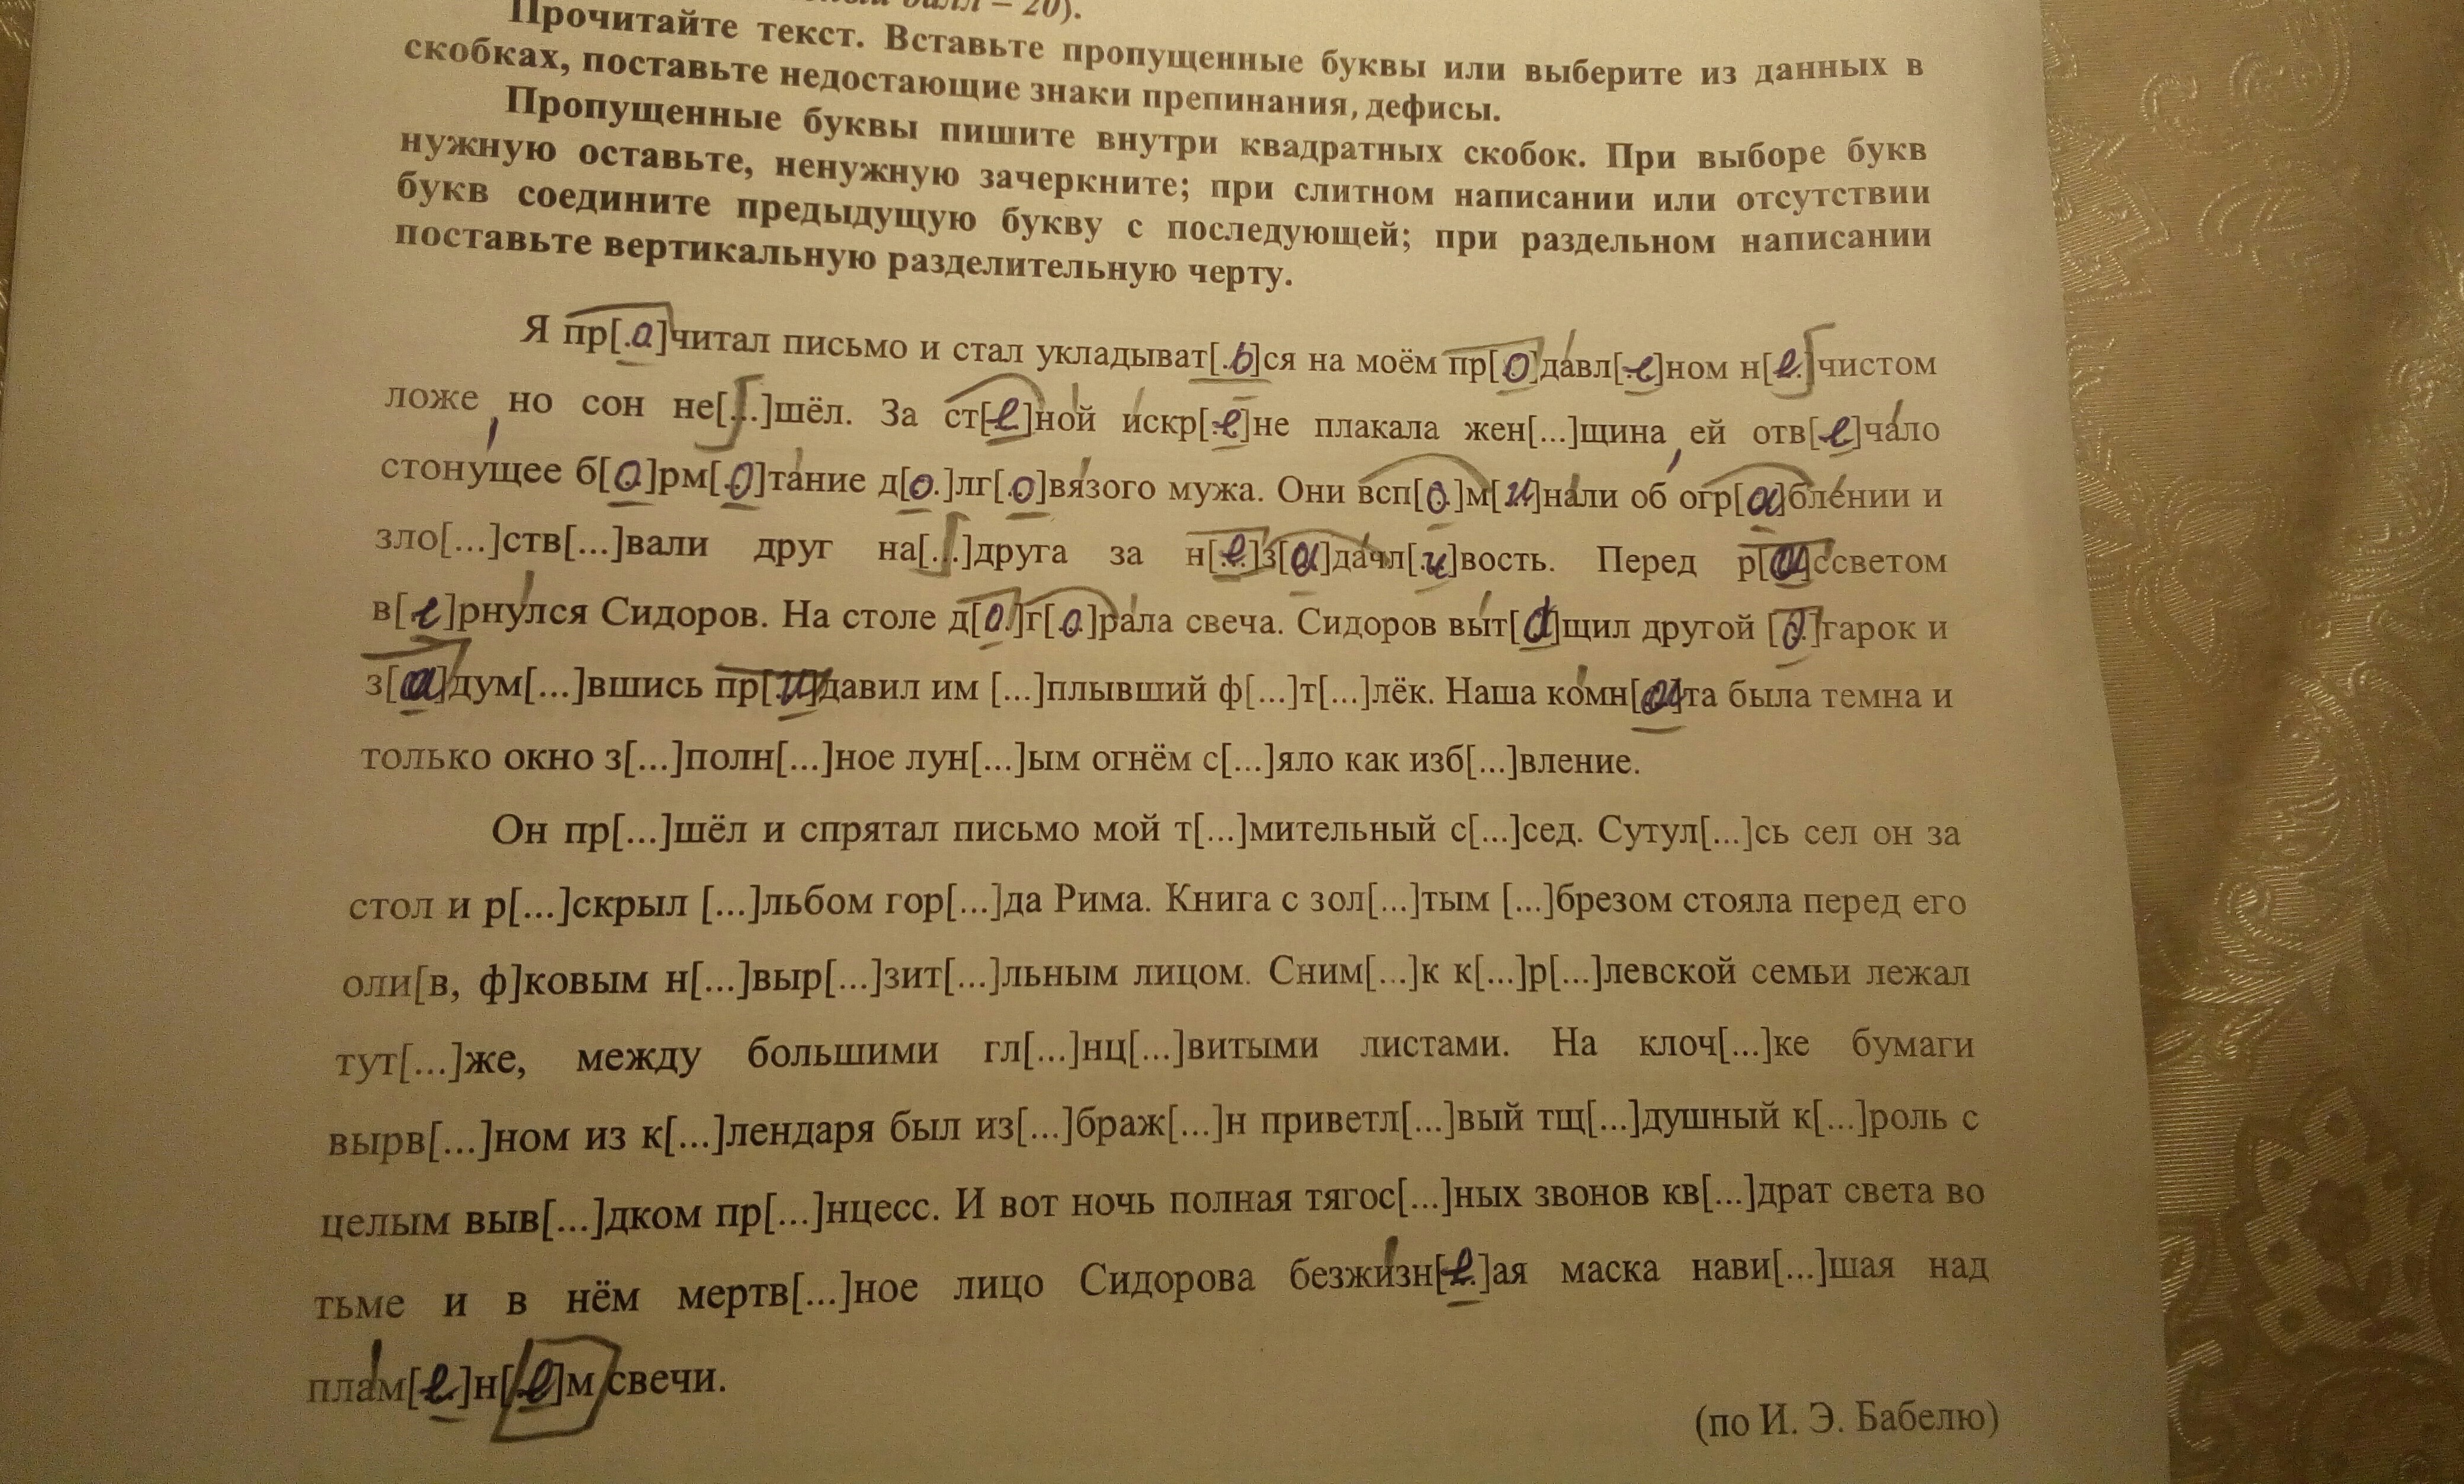 балл – 20).
Прочитайте текст. Вставьте пропущенные буквы или выберите из данных в
скобках, поставьте недостающие знаки препинания, дефисы.
Пропущенные буквы пишите внутри квадратных скобок. При выборе букв
нужную оставьте, ненужную зачеркните; при слитном написании или отсутствии
букв соедините предыдущую букву с последующей; при раздельном написании
поставьте вертикальную разделительную черту.
Я пр[а]читал письмо и стал укладыват[ь]ся на моём пр[о]давл[е]ном н[е]чистом
ложе, но сон не[...]шёл. За ст[е]ной искр[е]не плакала жен[...]щина, ей отв[е]чало
стонущее б[о]рм[о]тание д[о]лг[о]вязого мужа. Они всп[о]м[и]нали об огр[а]блении и
зло[...]ств[...]вали друг на[...]друга за н[е]з[а]дачл[и]вость. Перед р[а]ссветом
в[е]рнулся Сидоров. На столе д[о]г[о]рала свеча. Сидоров выт[а]щил другой [о]гарок и
з[а]дум[...]вшись пр[и]давил им [...]плывший ф[...]т[...]лёк. Наша комн[а]та была темна и
только окно з[...]полн[...]ное лун[...]ым огнём с[...]яло как изб[...]вление.
Он пр[...]шёл и спрятал письмо мой т[...]мительный с[...]сед. Сутул[...]сь сел он за
стол и р[...]скрыл [...]льбом гор[...]да Рима. Книга с зол[...]тым [...]брезом стояла перед его
оли[в, ф]ковым н[...]выр[...]зит[...]льным лицом. Сним[...]к к[...]р[...]левской семьи лежал
тут[...]же, между большими гл[...]нц[...]витыми листами. На клоч[...]ке бумаги
вырв[...]ном из к[...]лендаря был из[...]браж[...]н приветл[...]вый тщ[...]душный к[...]роль с
целым выв[...]дком пр[...]нцесс. И вот ночь полная тягос[...]ных звонов кв[...]драт света во
тьме и в нём мертв[...]ное лицо Сидорова безжизн[е]ая маска нави[...]шая над
плам[е]н[е]м свечи.
(по И. Э. Бабелю)